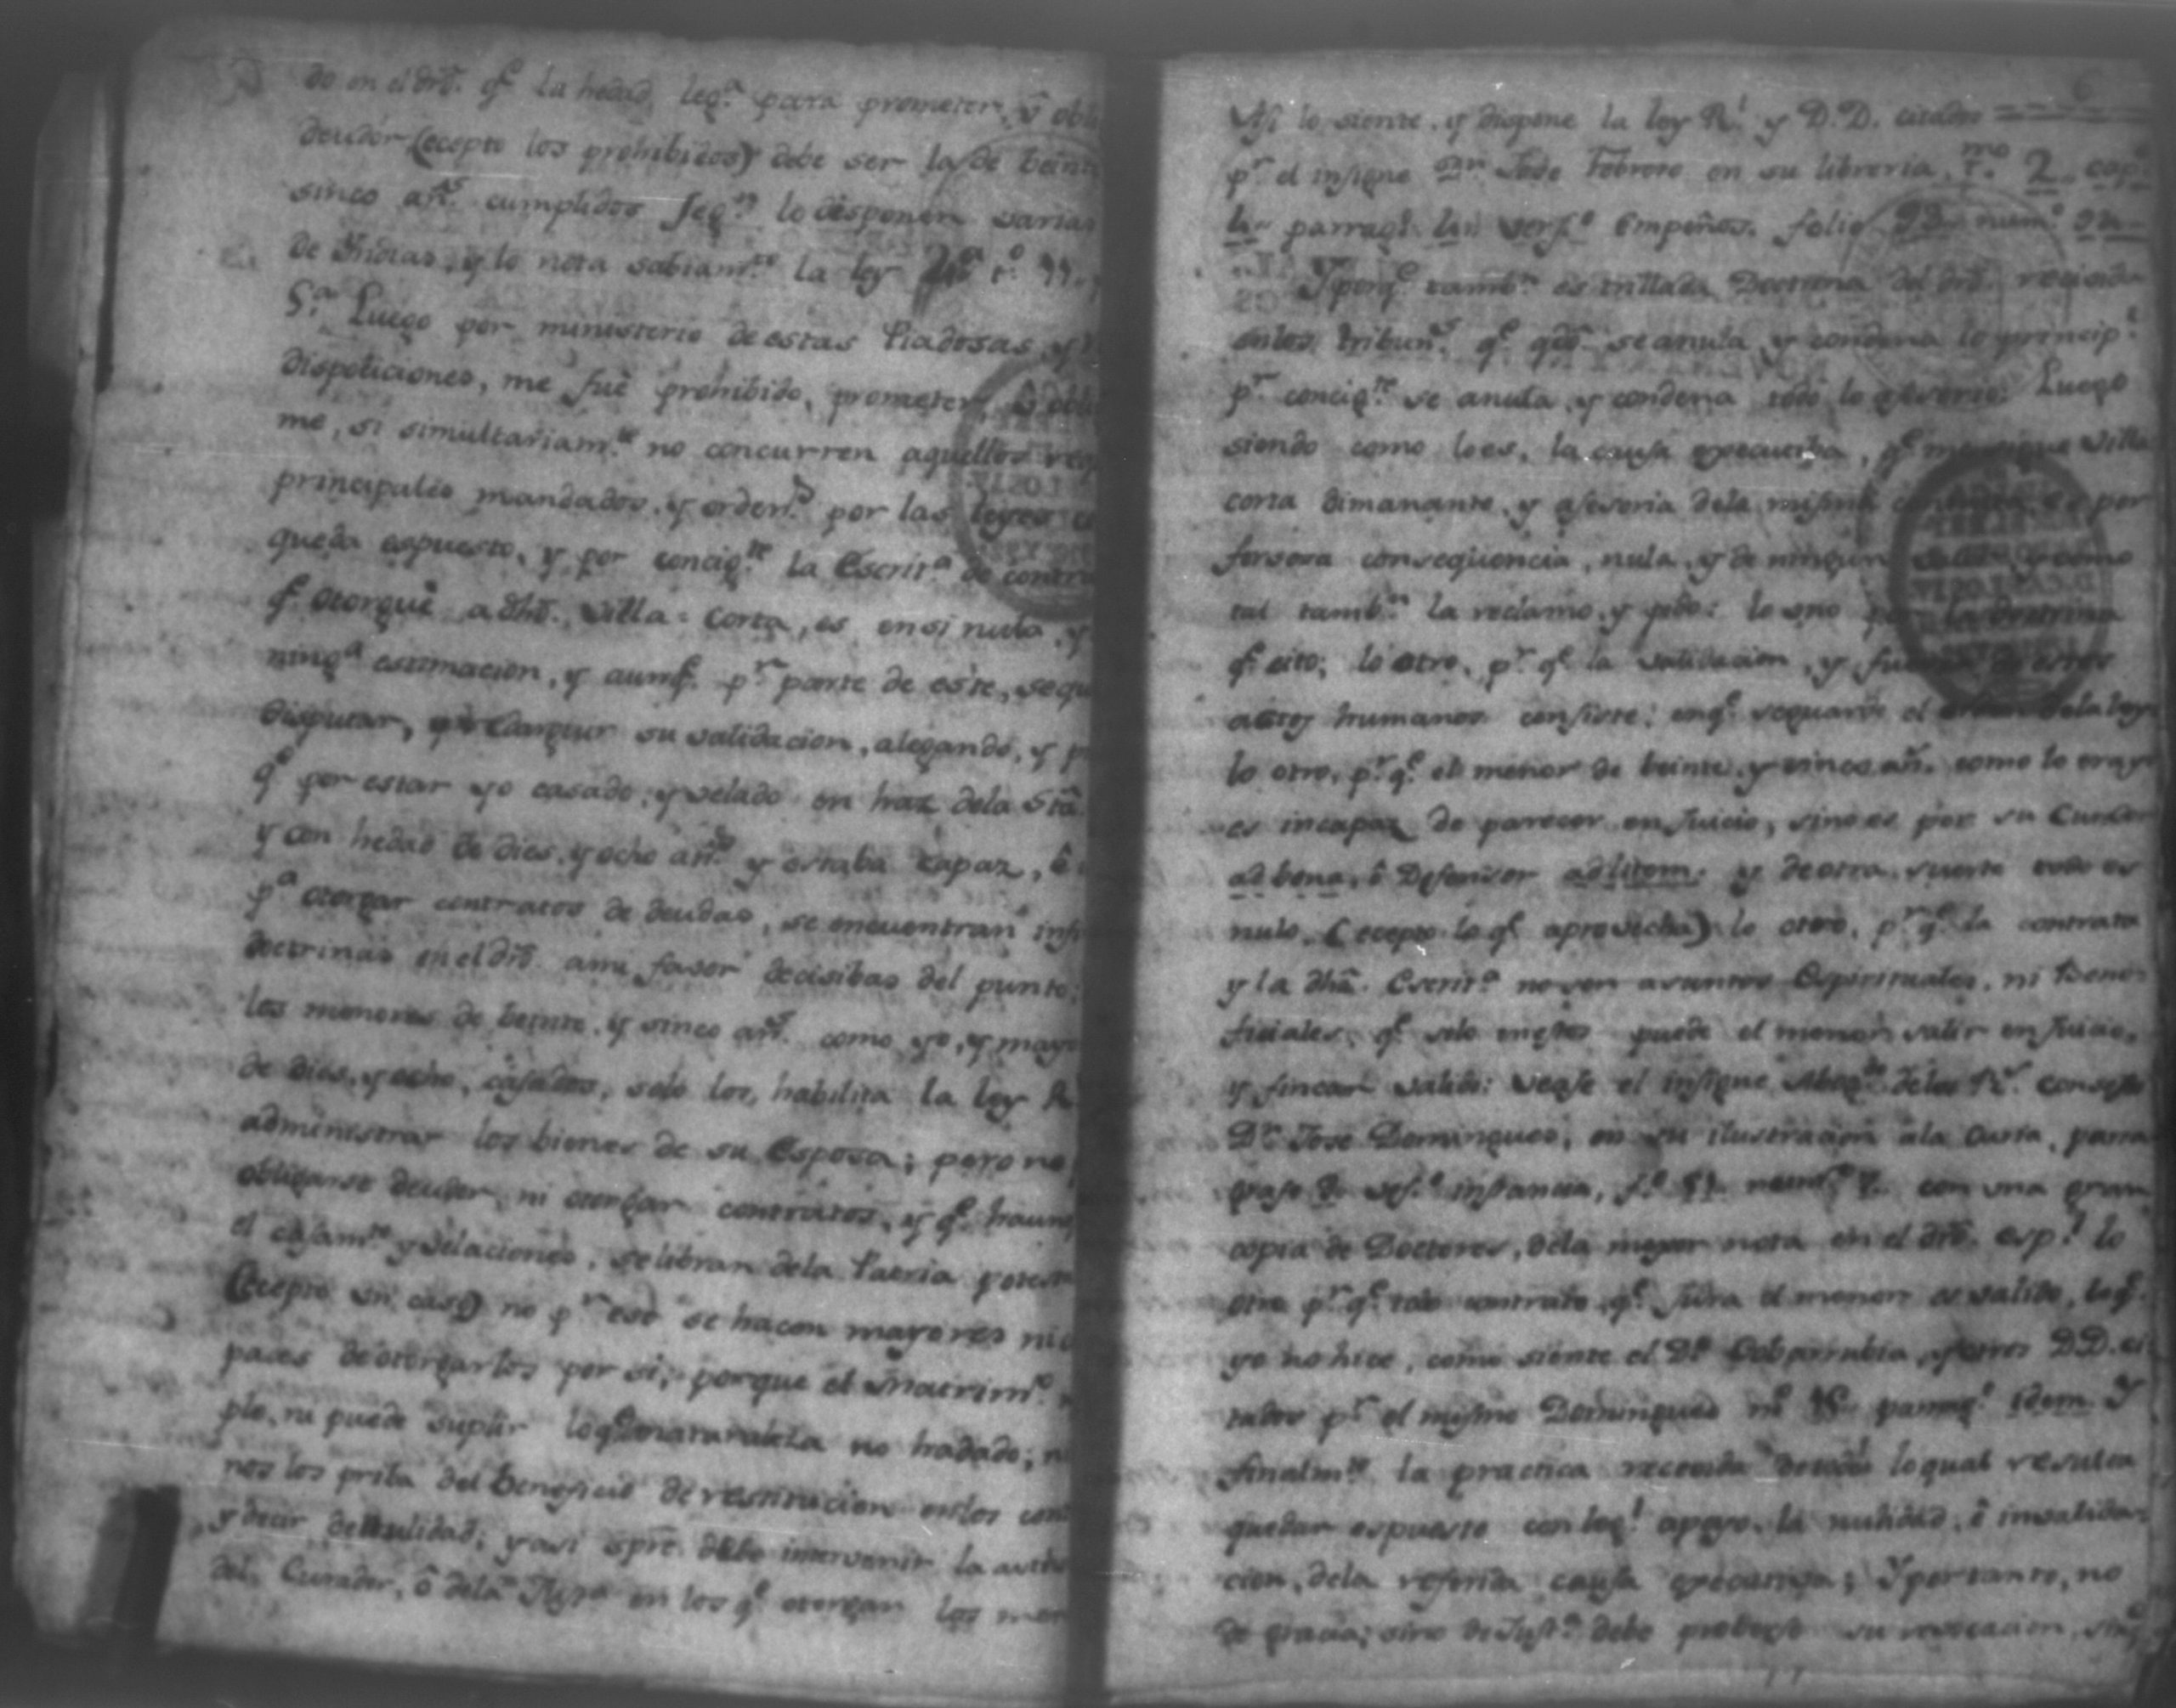 do en el dro. q.e la hedad, leg.a para prometer, ỹ obli
deudor (ecepto los prohibidos) debe ser la de beinte
sinco añ.s cumplidos seg.n lo disponen varias
de Indias, y lo nota sabiam.te la ley 4.a t.o 11. p
5.a Luego por ministerio de estas Piadosas, y
dispociciones, me fuè prohibido, prometer, ò obli
me, si simultaniam.te no concurren aquellos req
principales mandados, y orden.s por las leyes co
queda espuesto, y por concig.te la Escrit.a de contra
q.e otorguè a dho. Villa-corta, es en si nula, y
ning.a estimacion, y aunq.e p.r parte de este, sequi
disputar, su validacion, alegando, y p
q.e por estar yo casado, y velado en haz dela Sta.
y con hedad de dies, y ocho añ.s y estaba capaz, ê
p.a otorgar contratos de deudas, se encuentran infi
doctrinas en el dro. ami favor decisibas del punto:
los menores de beinte, y sinco añ.s como yo, y mayo
de dies, y ocho, casados, solo los, habilita la ley R
administrar los bienes de su Esposa; pero no
obligarse deudor, ni otorgar contratos, y q.e haun
el casam.to y velaciones, selibran dela Patria potest
(ecepto un caso) no p.r eso se hacen mayores ni c
paces de otorgarlos por si; porque el Matrim.o
ple, ni puede suplir loq.e naturaleza no hadado; n
nos los priba del beneficio de restitucion enlos con
y decir de nulidad; y asi spre. debe intervenir la auth
del, Curador, ô dela Just.a en los q.e otorgan los men
6
Asi lo siente, y dispone la ley R.l y D.D. citados
p.r el insigne S.r Jose Febrero en su libreria, t.mo 2. cap.
4. parrag.o 4. vers.o Empeños. folio num.o
Y porq.e tamb.n es trillada Doctrina del dro. recivida
enlos tribun.s q.e qdo. se anula, y condena lo princip.l
p.r concig.te se anula, y condena todo lo Luego
siendo como loes, la causa executiba, q.e me sigue Villa
corta dimanante, y asesoria dela misma por
forsosa consequencia, nula, y de ningun y como
tal tamb.n la reclamo, y pido: lo uno la doctrina
q.e cito; lo otro, p.r q.e la validacion, y de estos
actos humanos consiste; enq.e seguarde el dela ley
lo otro, p.r q.e el menor de beinte, y cinco añ.s como lo era yo
es incapaz de parecer en Juicio, sino es por su Curador
ad bona, ô Defensor ad litem; y de otra suerte todo es
nulo, (ecepto lo q.e aprovecha) lo otro, p.r q.e la contrata
y la dha. Escrit.a no son asuntos Espirituales, ni Bene-
ficiales; q.e solo enestos puede el menor salir en Juicio,
y fincar valido: vease el insigne Abog.do delos R.s Consejos
D.n Jose Dominguez, en su ilustracion ala Curia, parra
grafo vers.o instancia, f.o 51. num.o 7. con una gran
copia de Doctores, dela mayor nota en el dro. esp.l lo
otro p.r q.e todo contrato, q.e Jura el menor es valido, loq.e
yo no hice, como siente el S.r Cobarrubia, y otros D.D. ci
tados p.r el mismo Dominguez n.o parrag.o idem. Y
finalm.te la practica recevida detodo loqual resulta
quedar espuesto con leg.l apoyo, la nulidad, ê invalida-
cion, dela referida causa executiva; Y por tanto, no
de gracia; sino de Just.a debe proberse su revocacion,